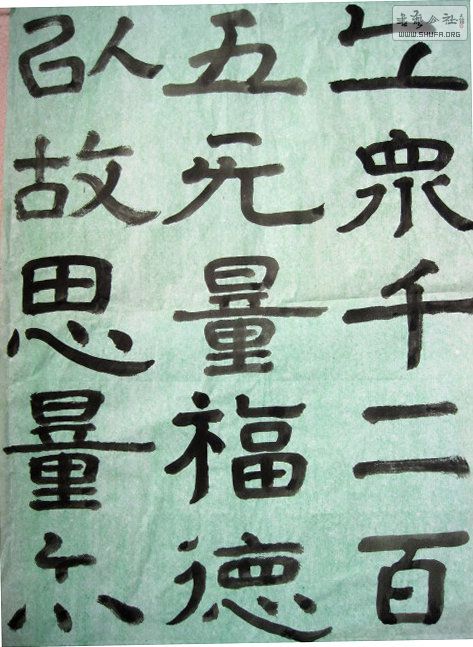 丘眾千二百
五无量福德
以故思量尒
書法公社
WWW.SHUFA.ORG